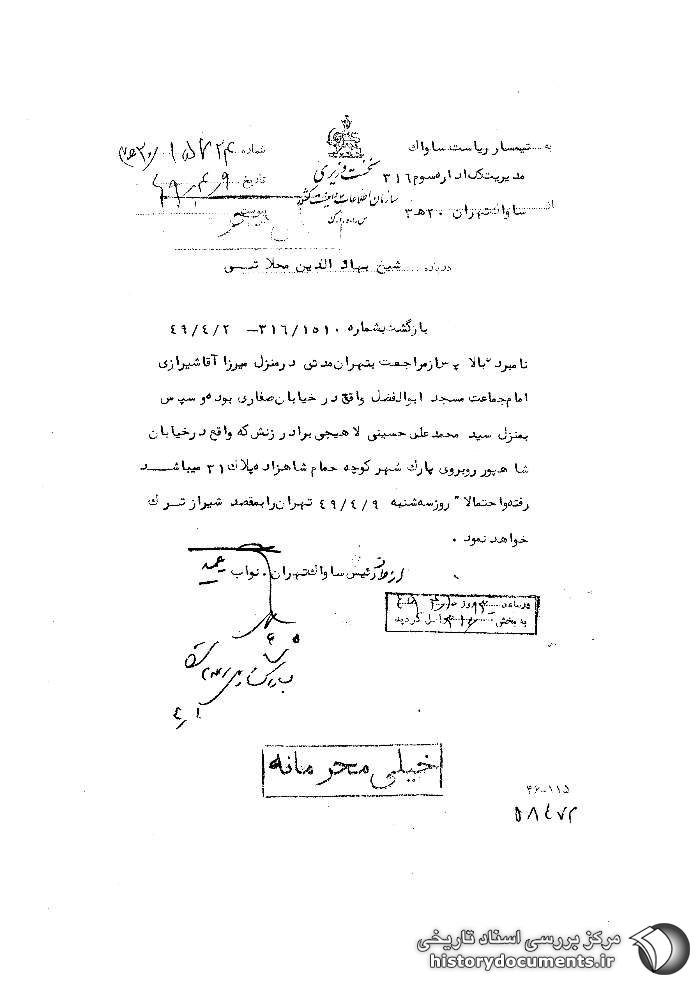 به تیمسار ریاست ساواک
مدیریت کل اداره سوم ۳۱۶
از ساواک تهران ۲۰ هـ ۳
نخست وزیری
سازمان اطلاعات و امنیت کشور
س.ا.و.ا.ک
شماره ۱۵۷۲۴
تاریخ ۴۹/۴/۹
پیوست
درباره شیخ بهاءالدین محلاتی
بازگشت بشماره ۳۱۶/۱۵۱۰ – ۴۹/۴/۲
نامبرده بالا پس از مراجعت بتهران مدتی در منزل میرزا آقا شیرازی
امام جماعت مسجد ابوالفضل واقع در خیابان صفاری بوده و سپس
بمنزل سید محمد علی حسینی لاهیجی برادر زنش که واقع در خیابان
شاهپور روبروی پارک شهر کوچه حمام شاهزاده پلاک ۳۱ میباشد
رفته و احتمالا" روز سه شنبه ۴۹/۴/۹ تهران را بمقصد شیراز ترک
خواهد نمود .
از طرف رئیس ساواک تهران . نواب
در ساعت روز
به بخش ۳۱۶ واصل گردید
خیلی محرمانه
۴۶-۱۱۵
۵۸۴۷۲
مرکز بررسی اسناد تاریخی
historydocuments.ir